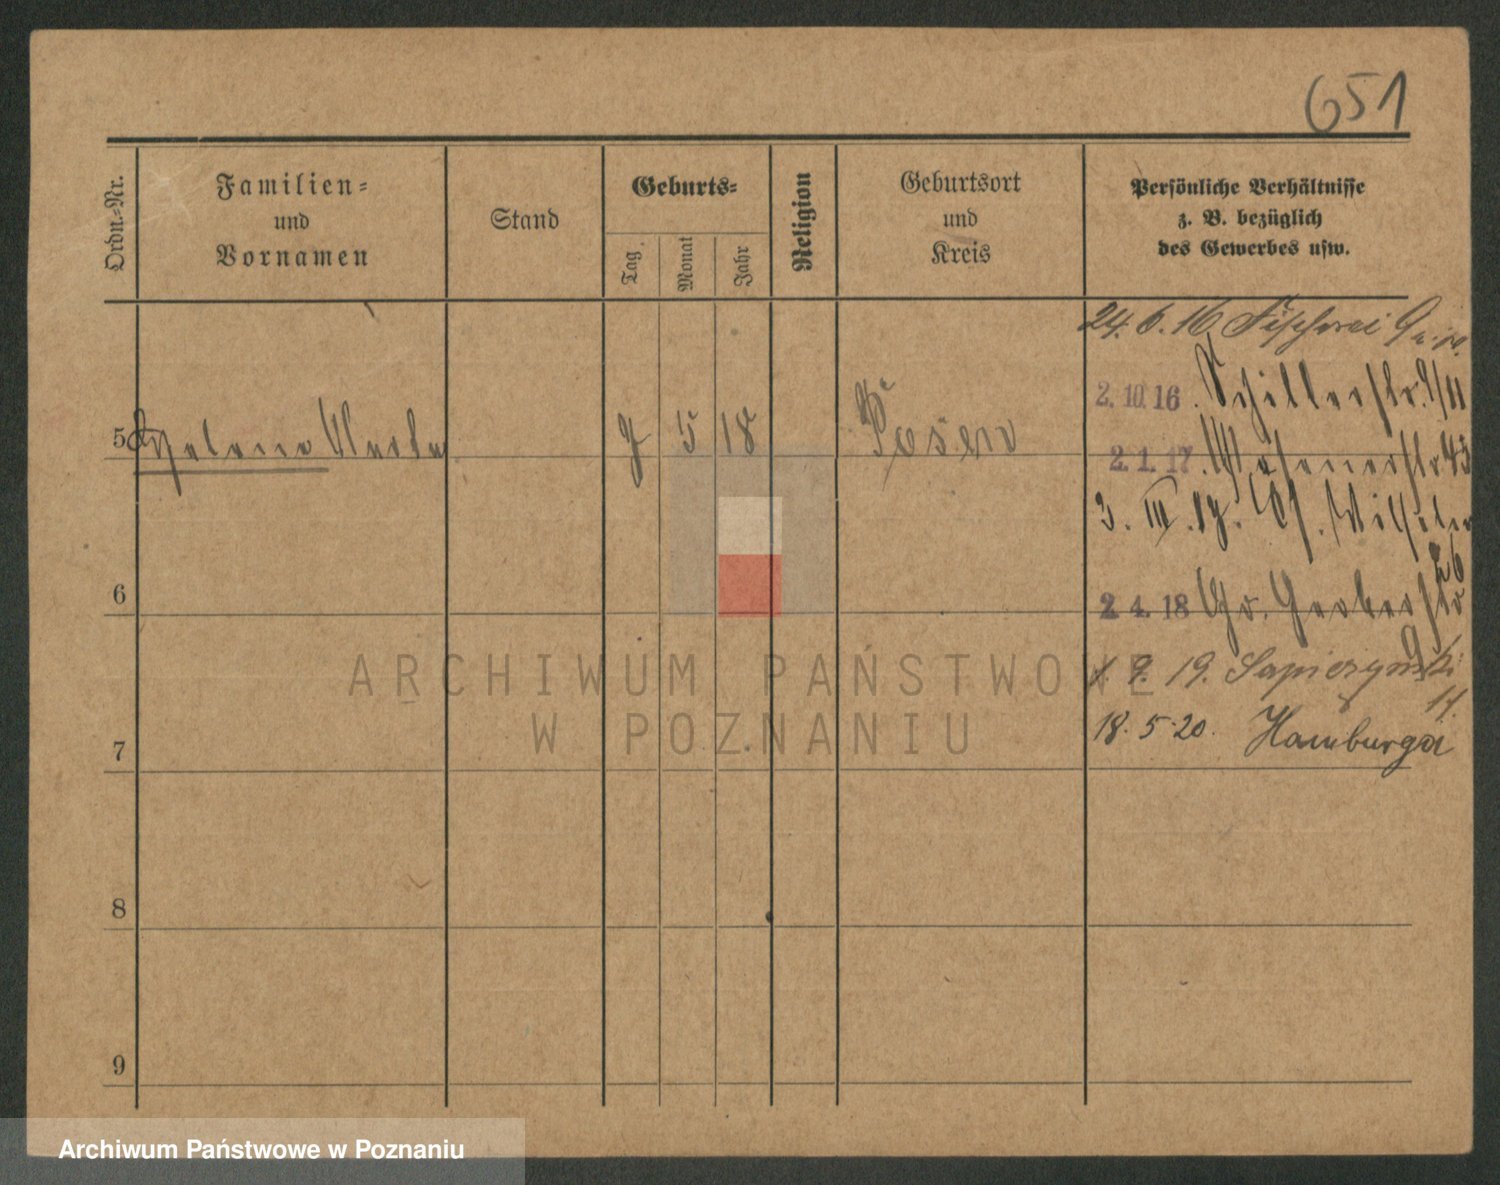 651
Ordn.-Nr.
Familien-
und
Vornamen
Stand
Geburts-
Tag
Monat
Jahr
Religion
Geburtsort
und
Kreis
Persönliche Verhältnisse
z. B. bezüglich
des Gewerbes usw.
24. 6. 16 Fischerei
2. 10. 16. Schillerstr. 9/11
5 Helene 5 18 Posen 2. 1. 17. 43
3. III. 17. Wilhelm
26
6 2. 4. 18 Gr. Gerberstr
9
1. 9. 19. Sapieżyński
11.
7 18. 5. 20. Hamburga
8
9
ARCHIWUM PAŃSTWOWE
W POZNANIU
Archiwum Państwowe w Poznaniu